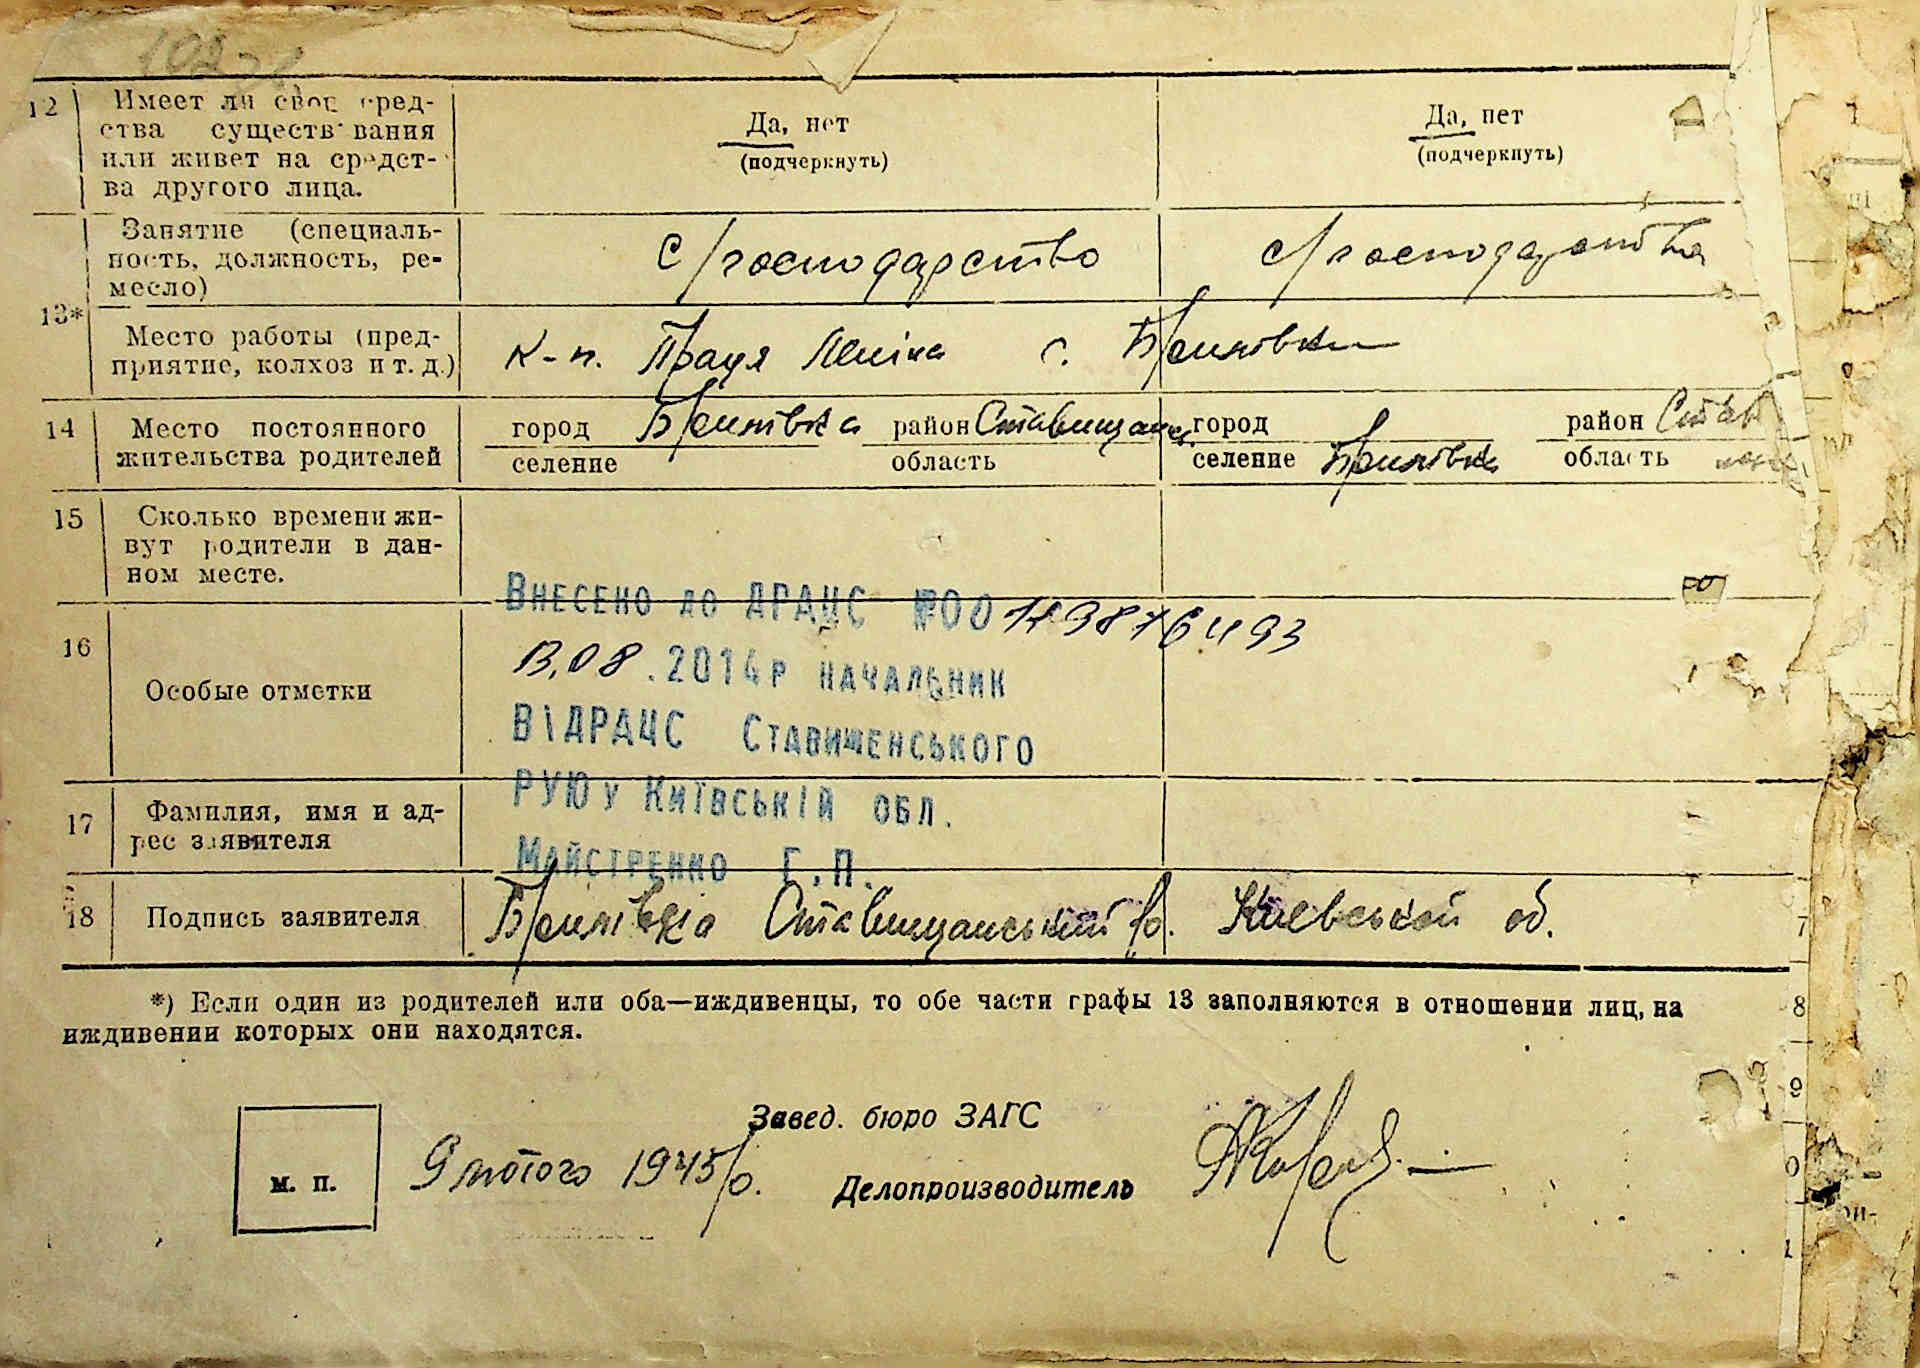 12 Имеет ли свои сред-
ства существования
или живет на средст-
ва другого лица.
Да, нет
(подчеркнуть)
Да, нет
(подчеркнуть)
13*
Занятие (специаль-
ность, должность, ре-
месло)
С/господарство
с/господарства
Место работы (пред-
приятие, колхоз и т. д.)
К-п. Праця Леніна с. Брилівки
14 Место постоянного
жительства родителей
город Брилівка район Ставищанс
селение область
город район Став
селение Брилівка область
15 Сколько времени жи-
вут родители в дан-
ном месте.
16 Особые отметки
Внесено до ДРАЦС №00
13.08.2014р начальник
ВІДРАЦС Ставищенського
РУЮ у Київській обл.
Майстренко Г.П.
17 Фамилия, имя и ад-
рес заявителя
18 Подпись заявителя
Брилівка Ставищанський р. Киевський об.
*) Если один из родителей или оба—иждивенцы, то обе части графы 13 заполняются в отношении лиц, на
иждивении которых они находятся.
Завед. бюро ЗАГС
м. п.
9 лютого 1945р.
Делопроизводитель